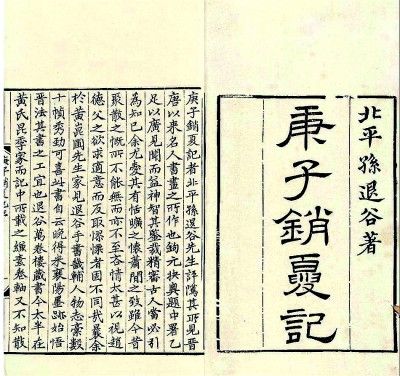 北平孫退谷著
庚子銷夏記
庚子銷夏記者北平孫退谷先生評隲其所見晉
唐以來名人書畫之所作也鉤元抉奥題甲署乙
足以廣見聞而益神智其鑒裁精審古人當必引
為知己余尤愛其有恬曠之懷蕭閒之致雖今昔
聚散之慨所不能無而亦不至吝情太甚以視趙
德父之欲求適意而反取憀慄者固不同哉曩余
於黄崑圃先生家見退谷手書畿輔人物志稾數
十幀秀勁可喜此書自云晚得米襄陽墨跡始悟
晉法其書之工宜也退谷萬卷樓藏書今太半在
黄氏昆季家而記中所載之縑素卷軸又不知散
庚子銷夏記